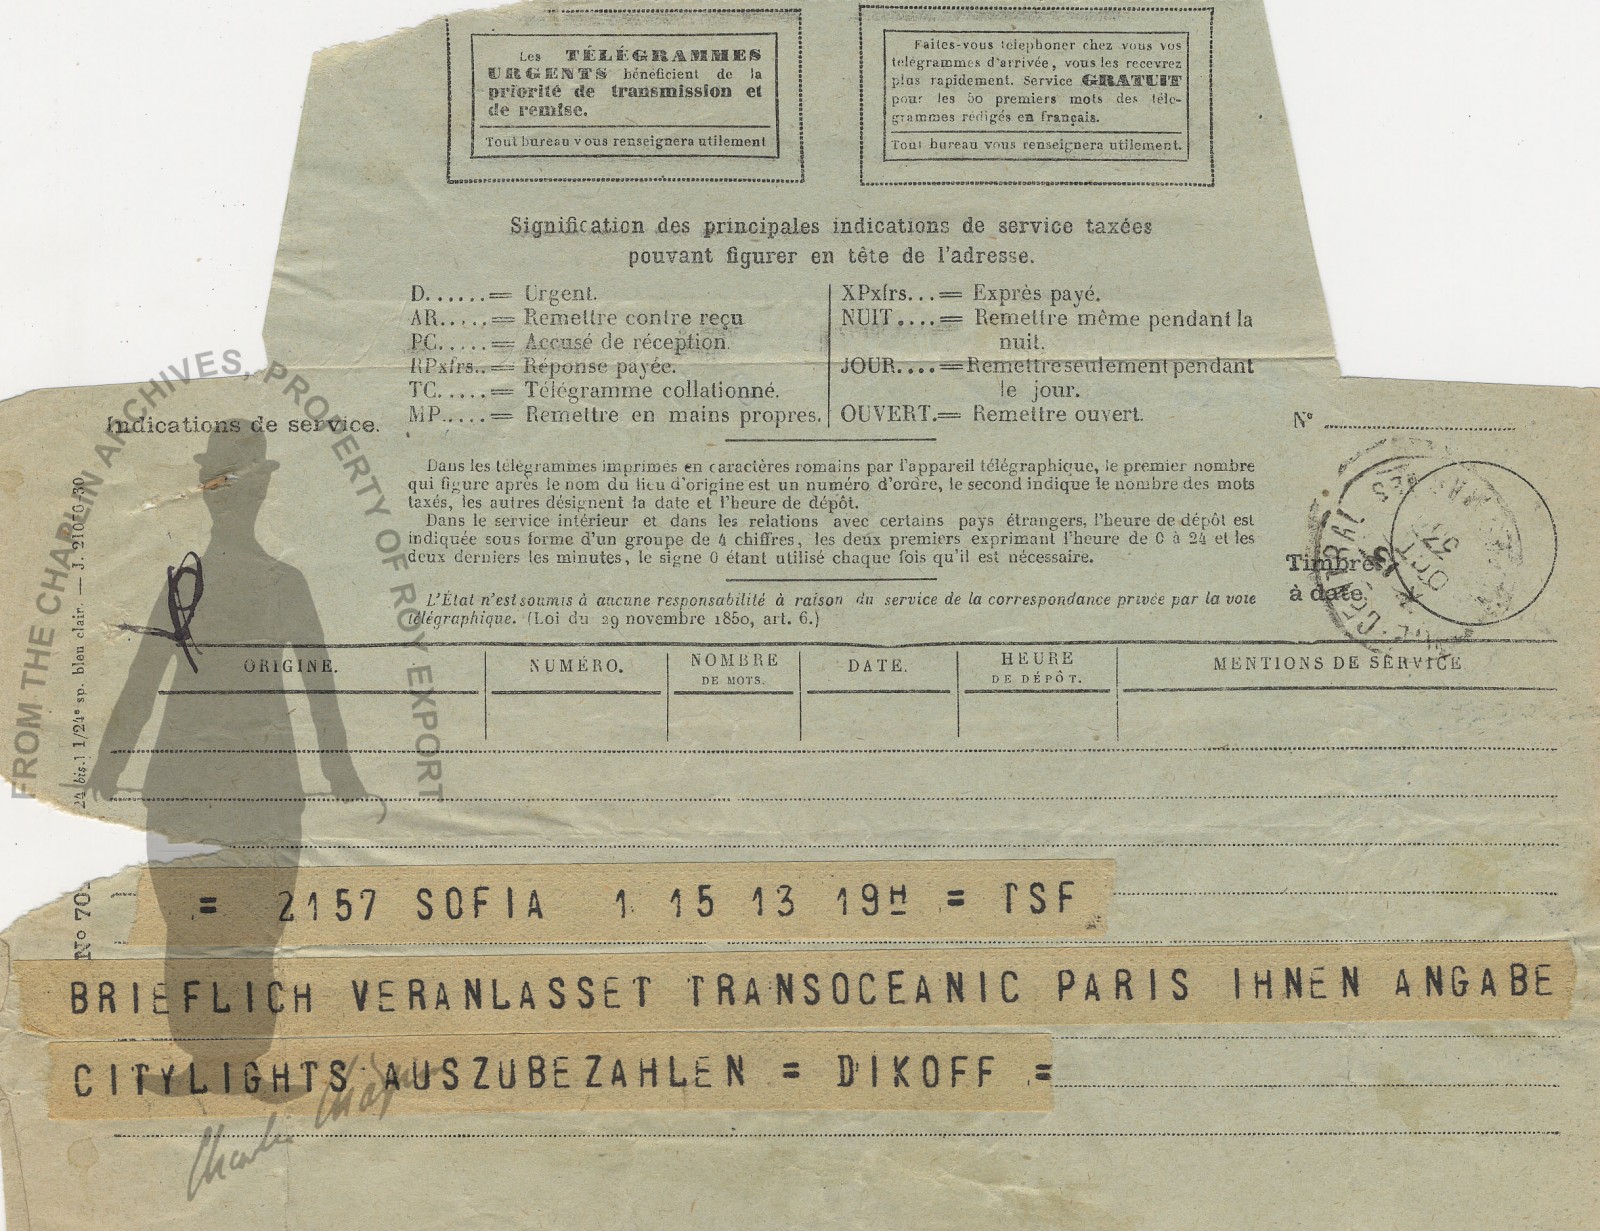 Les TÉLÉGRAMMES
URGENTS bénéficient de la
priorité de transmission et
de remise.
Tout bureau vous renseignera utilement
Faites-vous téléphoner chez vous vos
télégrammes d'arrivée, vous les recevrez
plus rapidement. Service GRATUIT
pour les 50 premiers mots des télé-
grammes rédigés en français.
Tout bureau vous renseignera utilement.
Signification des principales indications de service taxées
pouvant figurer en tête de l'adresse.
D......= Urgent.
AR.....= Remettre contre reçu
PC.....= Accusé de réception.
RPxfrs..= Réponse payée.
TC.....= Télégramme collationné.
MP.....= Remettre en mains propres.
XPxfrs...= Exprès payé.
NUIT....= Remettre même pendant la
nuit.
JOUR....= Remettre seulement pendant
le jour.
OUVERT.= Remettre ouvert.
Indications de service.
N°
Dans les télégrammes imprimés en caractères romains par l'appareil télégraphique, le premier nombre
qui figure après le nom du lieu d'origine est un numéro d'ordre, le second indique le nombre des mots
taxés, les autres désignent la date et l'heure de dépôt.
Dans le service intérieur et dans les relations avec certains pays étrangers, l'heure de dépôt est
indiquée sous forme d'un groupe de 4 chiffres, les deux premiers exprimant l'heure de 0 à 24 et les
deux derniers les minutes, le signe 0 étant utilisé chaque fois qu'il est nécessaire.
Timbre
à date.
L'État n'est soumis à aucune responsabilité à raison du service de la correspondance privée par la voie
télégraphique. (Loi du 29 novembre 1850, art. 6.)
ORIGINE.
NUMÉRO.
NOMBRE
DE MOTS.
DATE.
HEURE
DE DÉPÔT.
MENTIONS DE SERVICE
= 2157 SOFIA 1 15 13 19H = TSF
BRIEFLICH VERANLASSET TRANSOCEANIC PARIS IHNEN ANGABE
CITYLIGHTS AUSZUBEZAHLEN = DIKOFF =
N° 70
24 bis.) 1/24e sp. bleu clair. — J. 21070-30
FROM THE CHAPLIN ARCHIVES, PROPERTY OF ROY EXPORT